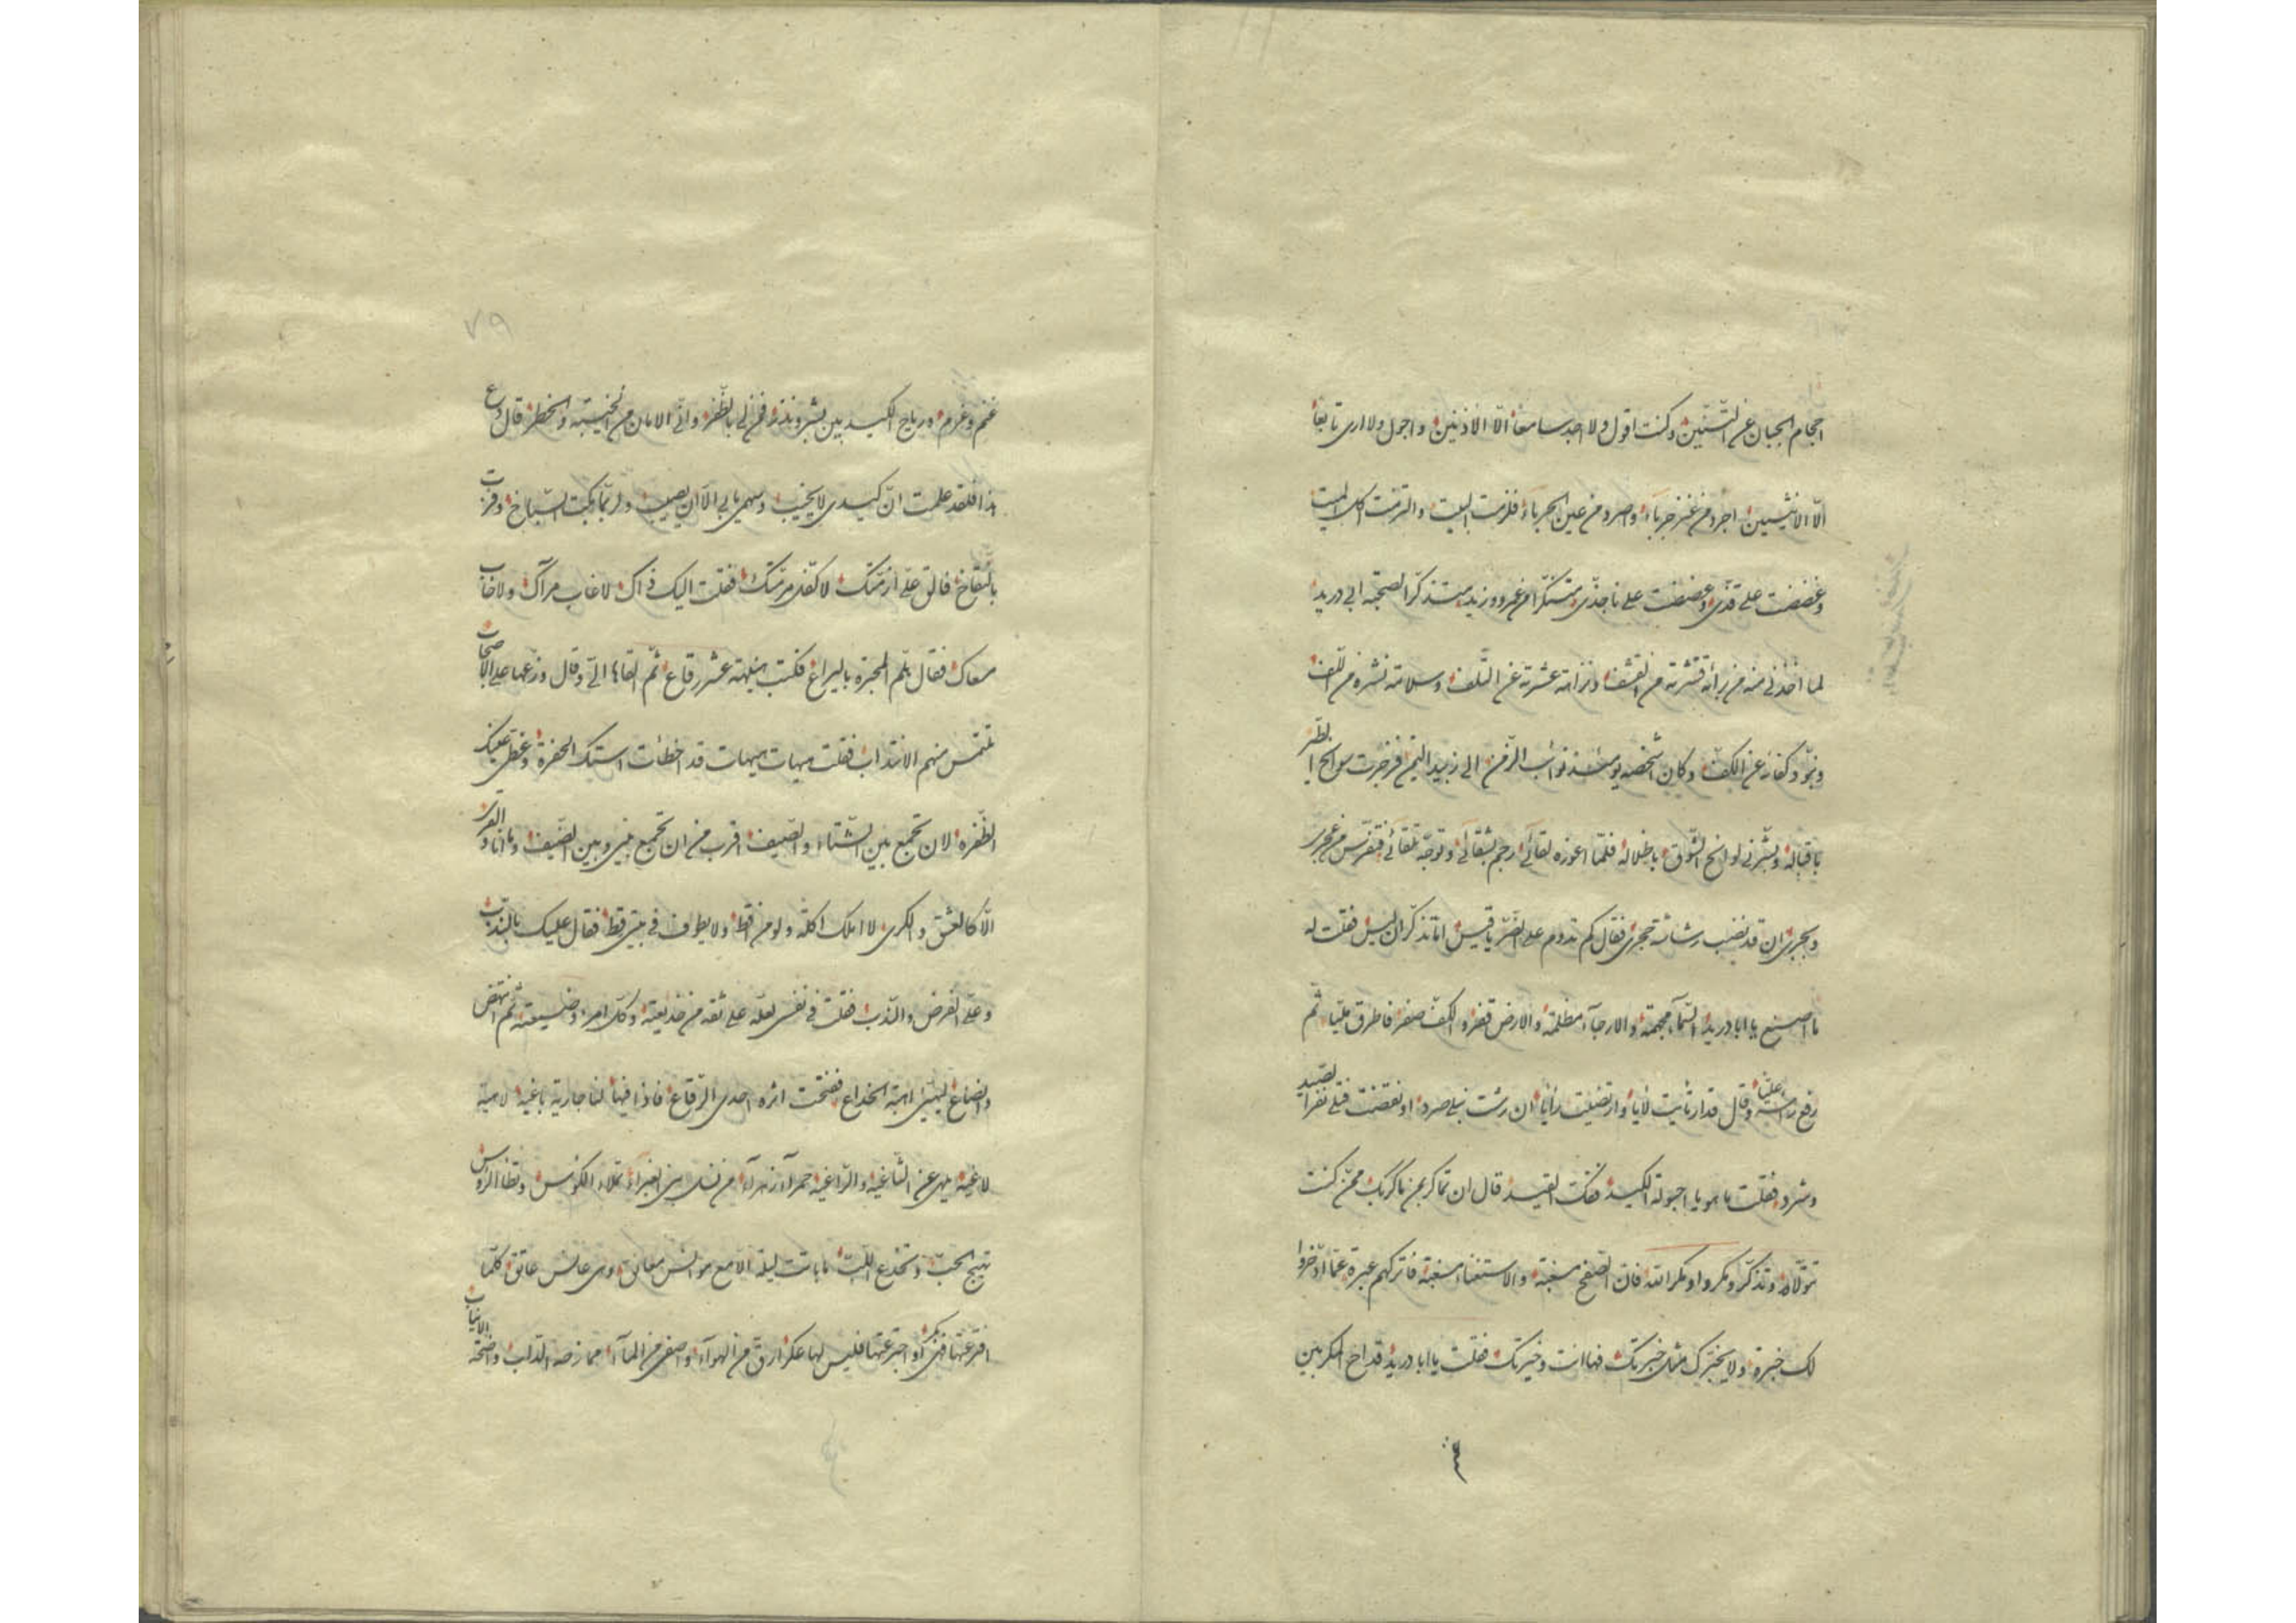 احجام الجبان عن التنين وكنت اقول ولا اجد سامعا الا الاذنين واجول ولا ارى تابعا
الا الانثيين اجرد من عنز جرباء واصرد من عين الحرباء فلزمت البيت والتزمت اكل الميت
وغضضت على قذى وعضضت على ناجذى متنكرا من عمرو وزيد متذكرا لصحبة ابى دريد
لما اخذنى منه من براءة قشرته من القشف ونزاهة عشرته عن التلف وسلامة نشره من اللف
وكفاه عن الكف وكان اشخصه يومئذ نوائب الزمن الى زبيد اليمن فزجرت سوانح الطير
باقباله وبشرنى لوائح الشوق باظلاله فلما اعوزه لقائى رجم بشقائى وتوجه تلقائى فتفرس من عجرى
وبجرى ان قد نضب رشاشة حجرى فقال كم تدوم على الضر يا قيس اما تذكر ان ليس فقلت له
ما اصنع يا ابا دريد السماء مجهمة والارجاء مظلمة والارض قفر والكف صفر فاطرق مليا ثم
رفع رأسه عليا وقال قد ارتأيت لأيا وارتضيت رأيا ان رشت نبلى صرد او نفضت قبلى نفر الصيد
وشرد فقلت ما هو يا احبولة الكيد فكت القيد قال ان تماكر بمن ماكر بك ممن كنت
تتولاه وتذكر ومكروا ومكر الله فان الصفح مسغبة والاستغناء مسغبة فاتركهم عبرة عما ادخروا
لك خبرة ولا يخبرك مثل خبرتك فها انت وخيرتك فقلت يا ابا دريد قداح المكر بين
٧٩
غنم وغرم ورياح الكيد بين بشر ونذر فمن لى بالظفر وانى الامان من الخيبة والخطر قال دع
هذا فلقد علمت ان كيدى لا يخيب وسهمى يابى الا ان يصيب ولربما ركبت السباخ وفزت
بالنقاخ فالق على ازمتك لاكفل مرمتك فقلت اليك ذاك لا غاب مرآك ولا خاب
مسعاك فقال هلم المحبرة باليراع فكتب هنيهة عشر رقاع ثم القاها الى وقال وزعها على الاصحاب
تلتمس منهم الانتداب فقلت هيهات هيهات قد اخطأت استك الحفرة وغطى عليك
الظفره لان تجمع بين الشتاء والصيف اقرب من ان تجمع بينى وبين الضيف وما انا والقرى
الا كالعشق والكرى لا املك اكلة ولو من اقط ولا يطوف فى بيتى قط فقال عليك بالندب
وعلى الفرض والندب فقلت فى نفسى لعله على ثقة من خديعته وكل امرء وضيعته ثم انتهض
وانصاع ليهيئ اهبة الخداع ففتحت اثره احدى الرقاع فاذا فيها لنا جارية باغية لاهية
لاغية تلهى عن الثاغية والراغية حمراء زهراء من نسل بنى الغبراء تملاء الكؤس وتطأ الرؤس
تهيج الحب وتخدع اللب ما باتت ليلة الا مع موانس معانق وهى عانس عاتق كلما
افترعتها فبكر او اجترعتها فليس لها عكر ارق من الهواء واصفى من الماء ممازحة الالباب واضحة الانياب